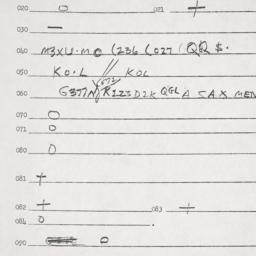 020 O 021 +
030 —
040 M3XU.M (236 (027 QQ $.
050 KO.L KOL
060 G377N R1223D2K QGL A SAX MEN
070 O
071 O
080 O
081 +
082 + 083 +
084 O
090 O